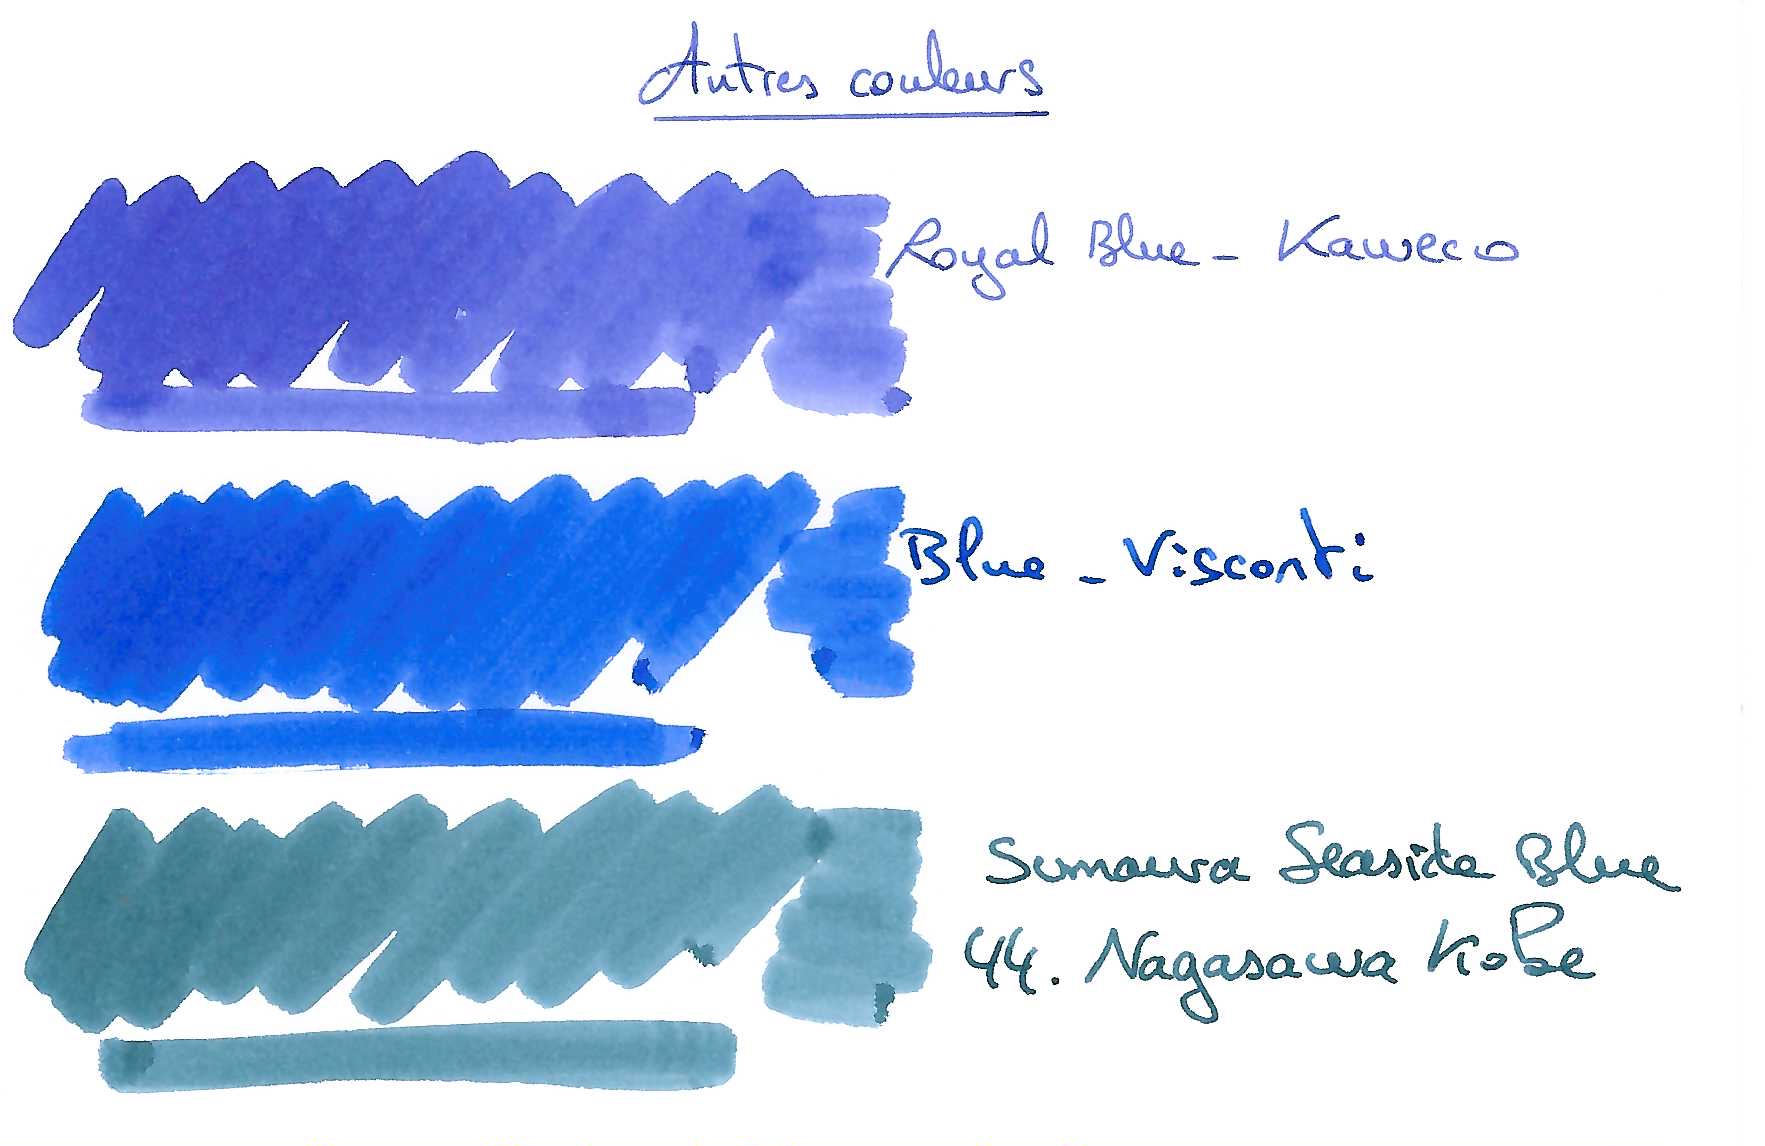 Autres couleurs
Royal Blue - Kaweco
Blue - Visconti
Sumaura Seaside Blue
44. Nagasawa Kobe